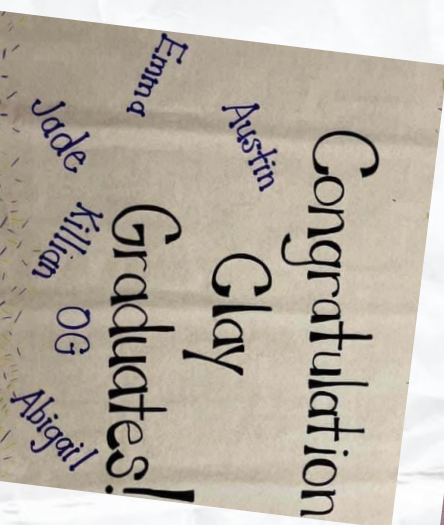 Congratulation
Clay
Graduates!
Austin
Emma
Jade
Killian
OG
Abigail